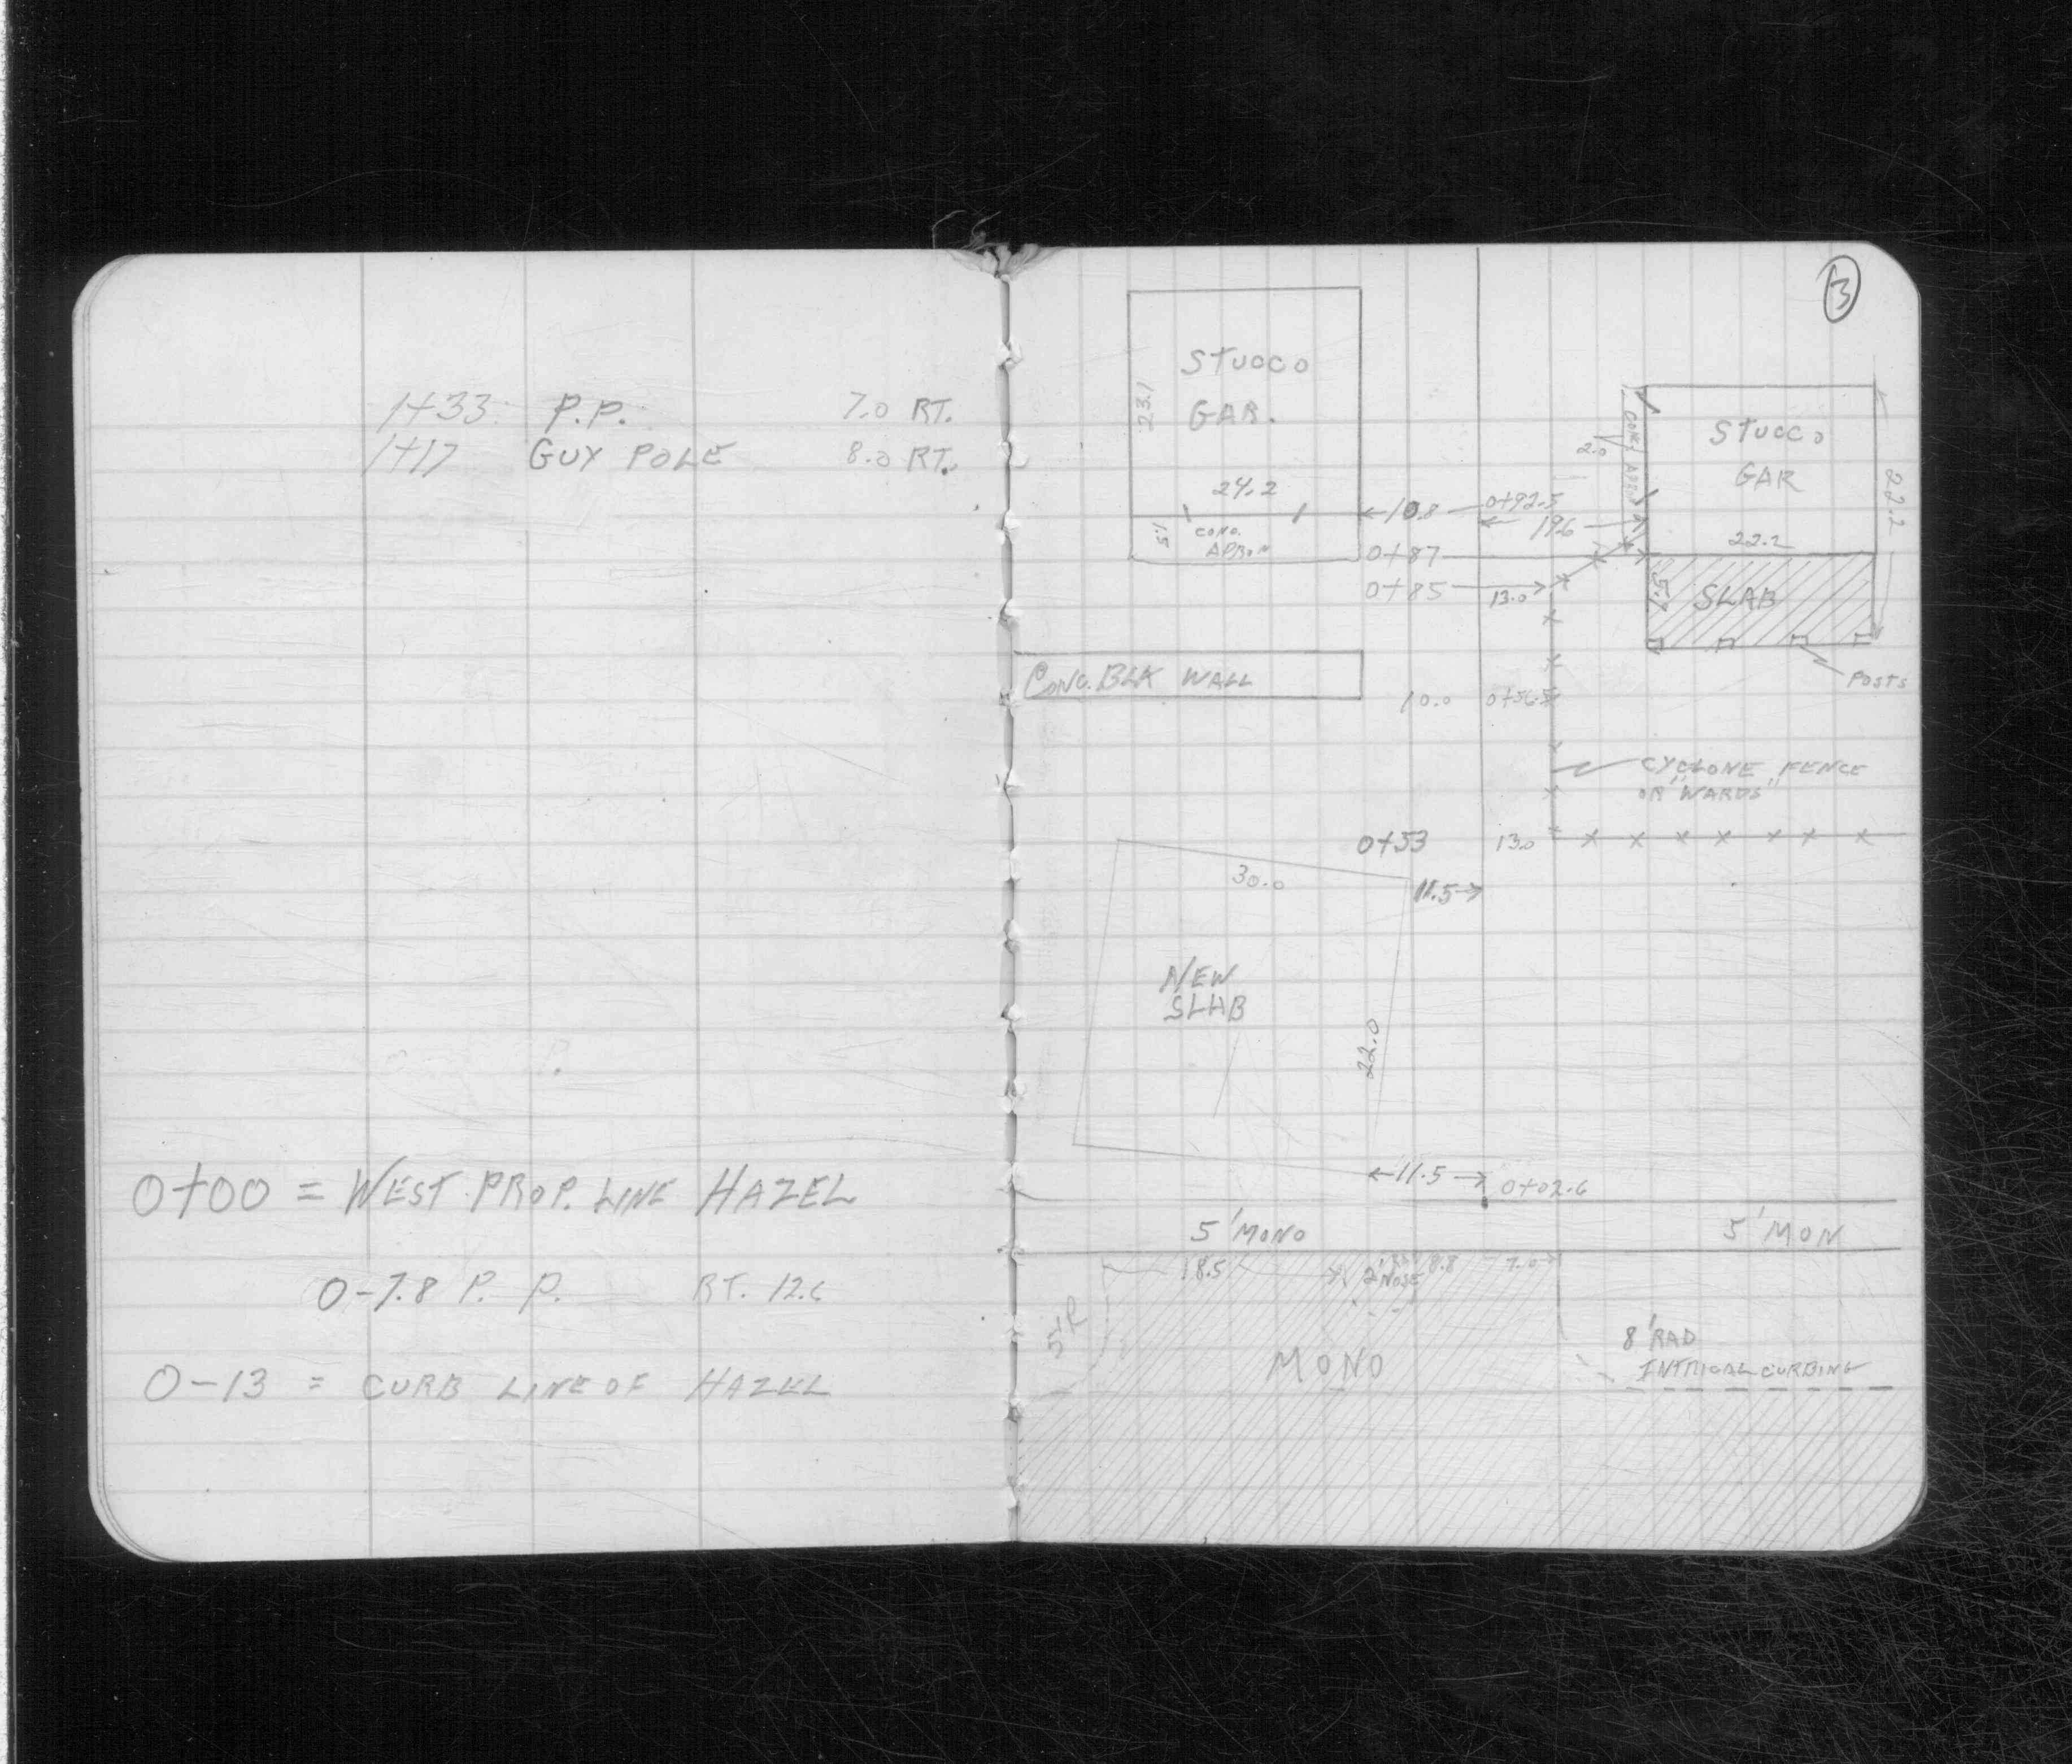 1+33 P.P. 7.0 RT.
1+17 GUY POLE 8.0 RT.
0+00 = WEST PROP. LINE HAZEL
0-7.8 P. P. RT. 12.6
0-13 = CURB LINE OF HAZEL
3
STUCCO
GAR.
23.1
24.2
5.1
CONC.
APRON
10.8
0+92.5
19.6
0+87
0+85
13.0
2.0
CONC APRON
STUCCO
GAR
22.2
22.2
5.7
SLAB
POSTS
CONC. BLK WALL
10.0
CYCLONE FENCE
OR "WARDS"
0+53
13.0
30.0
11.5
NEW
SLAB
22.0
11.5
0+02.6
5' MONO
5' MON
18.5
2' NOSE
8.8
7.0
5'R
MONO
8' RAD
INTRICAL CURBING